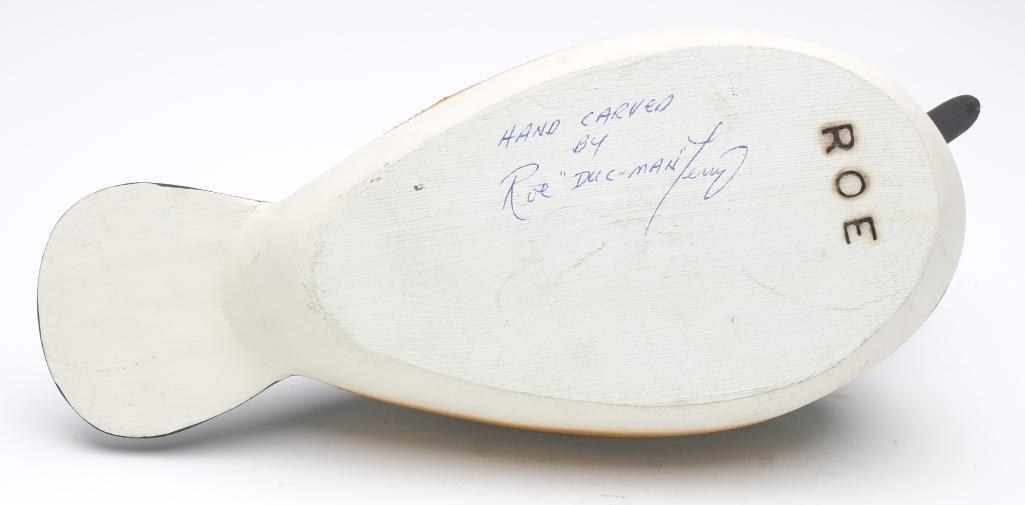 HAND CARVED
BY
Roe "DUC-MAN" Terry
ROE